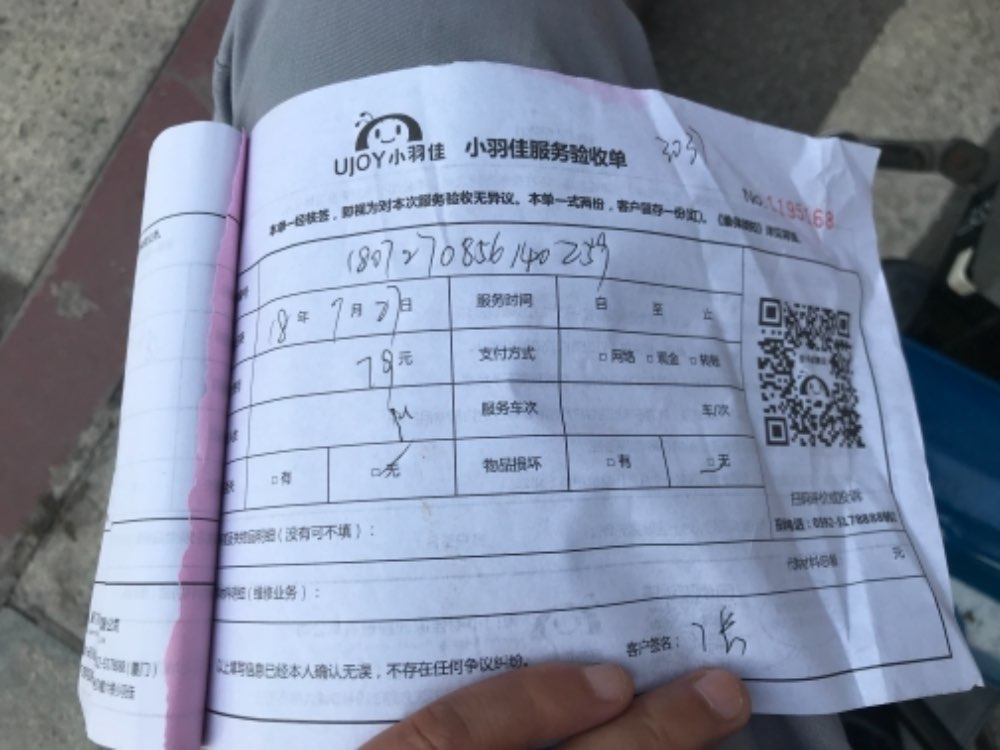 UJOY小羽佳 小羽佳服务验收单
No.1195168
本单一经核签，即视为对本次服务验收无异议。本单一式两份，客户留存一份
180727085614023
18年7月27日 服务时间 自 至 止
79元 支付方式 □网络 □现金 □转账
服务车次 车/次
□有 □无 物品损坏 □有 □无
明细（没有可不填）：
明细（维修业务）：
元
以上填写信息已经本人确认无误，不存在任何争议纠纷。 客户签名：